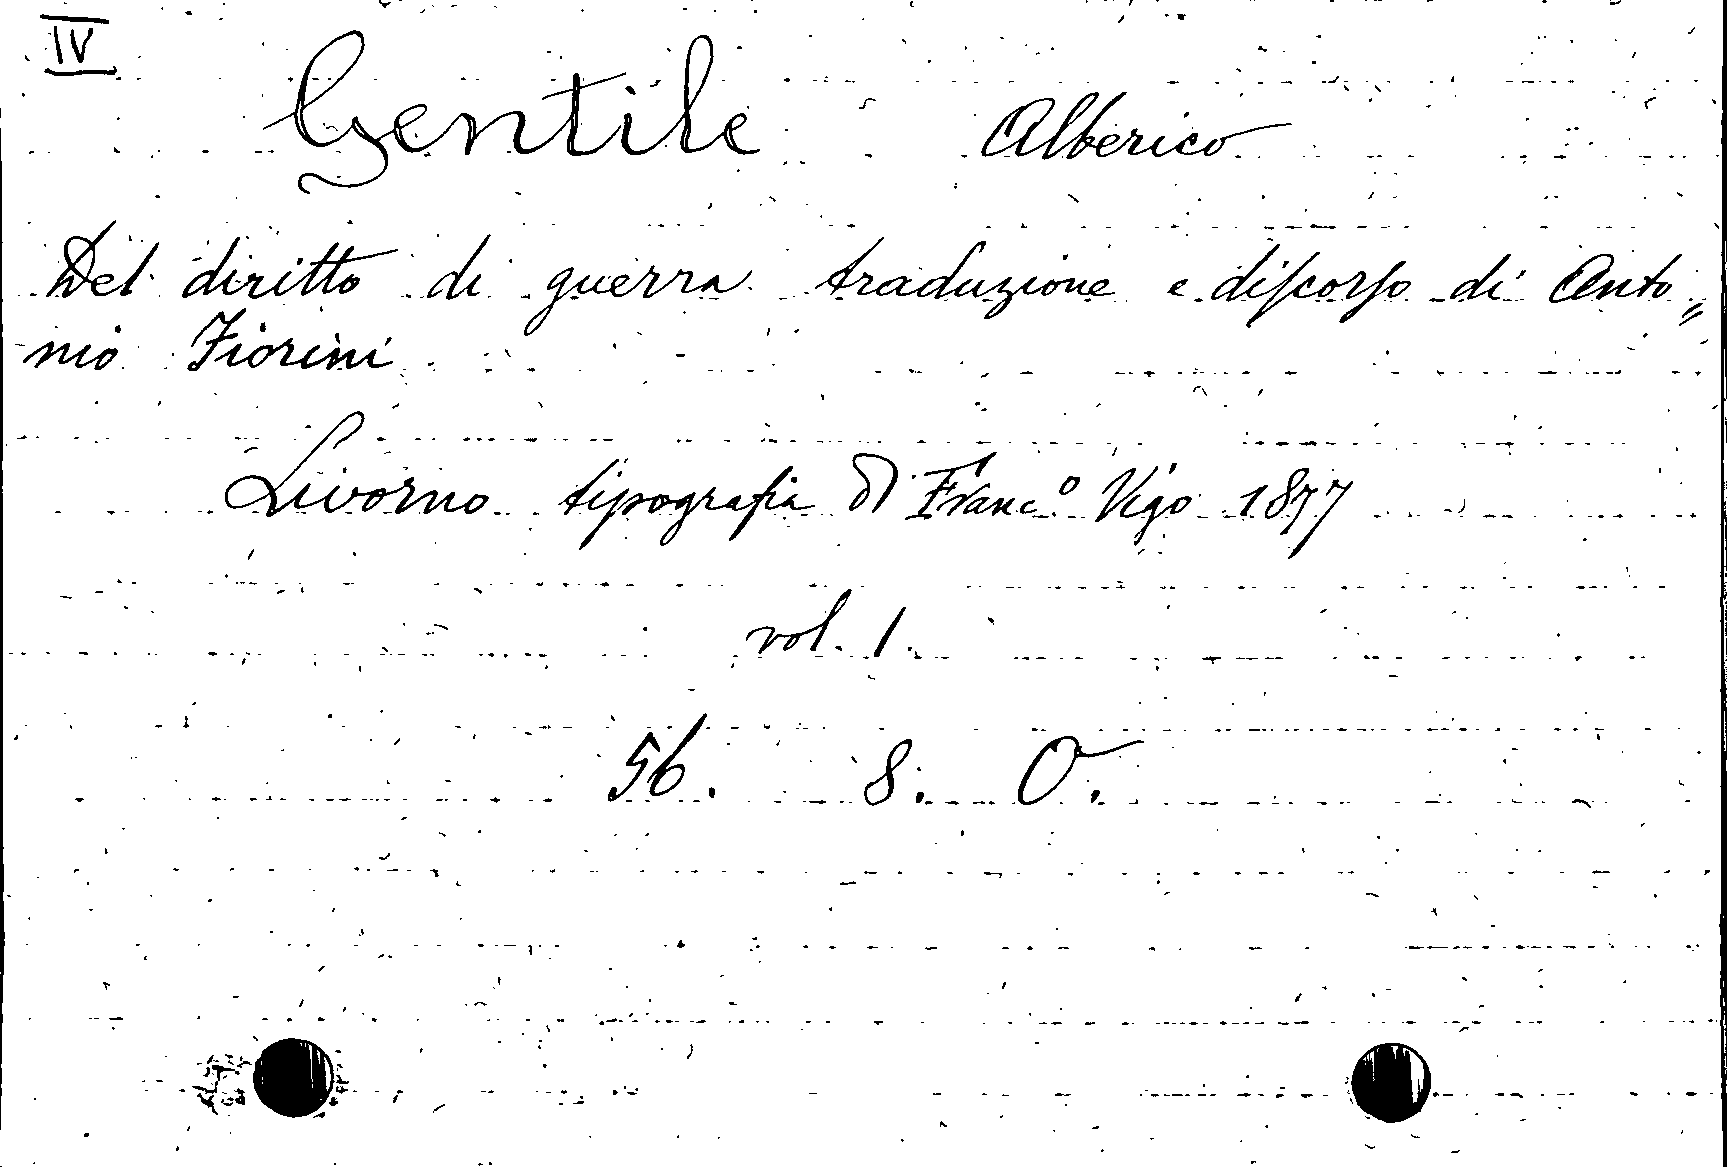 IV
Gentile Alberico
Del diritto di guerra traduzione e diſcorſo di Anto„
nio Fiorini
Livorno tipografia di Franc.º Vigo 1877
vol. 1.
56. 8. O.